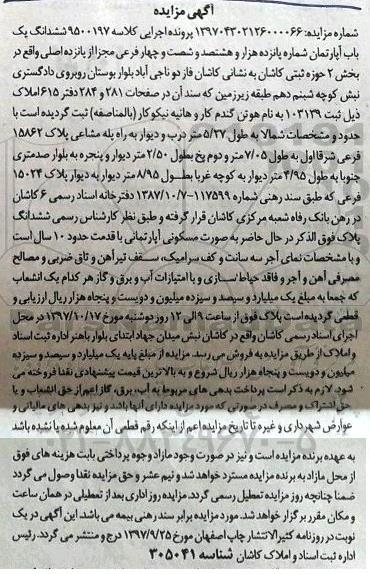 آگهی مزایده
شماره مزایده: ۱۳۹۷۰۴۳۰۲۱۲۶۰۰۰۰۶۶ پرونده اجرایی کلاسه ۹۵۰۰۱۹۷ ششدانگ یک
باب آپارتمان شماره پانزده هزار و هشتصد و شصت و چهار فرعی مجزا از پانزده اصلی واقع در
بخش ۲ حوزه ثبتی کاشان به نشانی کاشان فاز دو ناجی آباد بلوار بوستان روبروی دادگستری
نبش کوچه شبنم دهم طبقه زیرزمین که سند آن در صفحات ۲۸۱ و ۲۸۴ دفتر ۶۱۵ املاک
ذیل ثبت ۱۰۳۱۳۹ به نام هوتن گندم کار و هانیه نیکوکار (بالمناصفه) ثبت گردیده است با
حدود و مشخصات شمالا به طول ۵/۲۷ متر درب و دیوار به راه پله مشاعی پلاک ۱۵۸۶۲
فرعی شرقا اول به طول ۷/۰۵ متر و دوم پخ بطول ۲/۵۰ متر دیوار و پنجره به بلوار صدمتری
جنوبا به طول ۴/۹۵ متر دیوار به کوچه غربا بطول ۸/۹۵ متر دیوار به دیوار پلاک ۱۵۰۲۴
فرعی که طبق سند رهنی شماره ۱۱۷۵۹۹-۱۳۸۷/۱۰/۷ دفترخانه اسناد رسمی ۶ کاشان
در رهن بانک رفاه شعبه مرکزی کاشان قرار گرفته و طبق نظر کارشناس رسمی ششدانگ
پلاک فوق الذکر در حال حاضر به صورت مسکونی آپارتمانی با قدمت حدود ۱۰ سال است
و با مشخصات نمای آجر سه سانت و کف سرامیک، سقف تیرآهن و تاق ضربی و مصالح
مصرفی آهن و آجر و فاقد حیاط سازی و با امتیازات آب و برق و گاز هر کدام یک انشعاب
که جمعا به مبلغ یک میلیارد و سیصد و سیزده میلیون و دویست و پنجاه هزار ریال ارزیابی و
قطعی گردیده است پلاک فوق از ساعت ۹ الی ۱۲ روز دوشنبه مورخ ۱۳۹۷/۱۰/۱۷ در محل
اجرای اسناد رسمی کاشان واقع در کاشان نبش میدان جهاد ابتدای بلوار باهنر اداره ثبت اسناد
و املاک از طریق مزایده به فروش می رسد. مزایده از مبلغ پایه یک میلیارد و سیصد و سیزده
میلیون و دویست و پنجاه هزار ریال شروع و به بالاترین قیمت پیشنهادی نقدا فروخته می
شود. لازم به ذکر است پرداخت بدهی های مربوط به آب، برق، گاز اعم از حق انشعاب و یا
حق اشتراک و مصرف در صورتی که مورد مزایده دارای آنها باشد و نیز بدهی های مالیاتی و
عوارض شهرداری و غیره تا تاریخ مزایده اعم از اینکه رقم قطعی آن معلوم شده یا نشده باشد
به عهده برنده مزایده است و نیز در صورت وجود مازاد وجوه پرداختی بابت هزینه های فوق
از محل مازاد به برنده مزایده مسترد خواهد شد و نیم عشر و حق مزایده نقدا وصول می گردد
ضمنا چنانچه روز مزایده تعطیل رسمی گردد. مزایده روز اداری بعد از تعطیلی در همان ساعت
و مکان مقرر برگزار خواهد شد. مورد مزایده برابر سند رهنی بیمه می باشد. این آگهی در یک
نوبت در روزنامه کثیرالانتشار چاپ اصفهان مورخ ۱۳۹۷/۹/۲۵ درج و منتشر می گردد. رئیس
اداره ثبت اسناد و املاک کاشان شناسه ۳۰۵۰۴۱